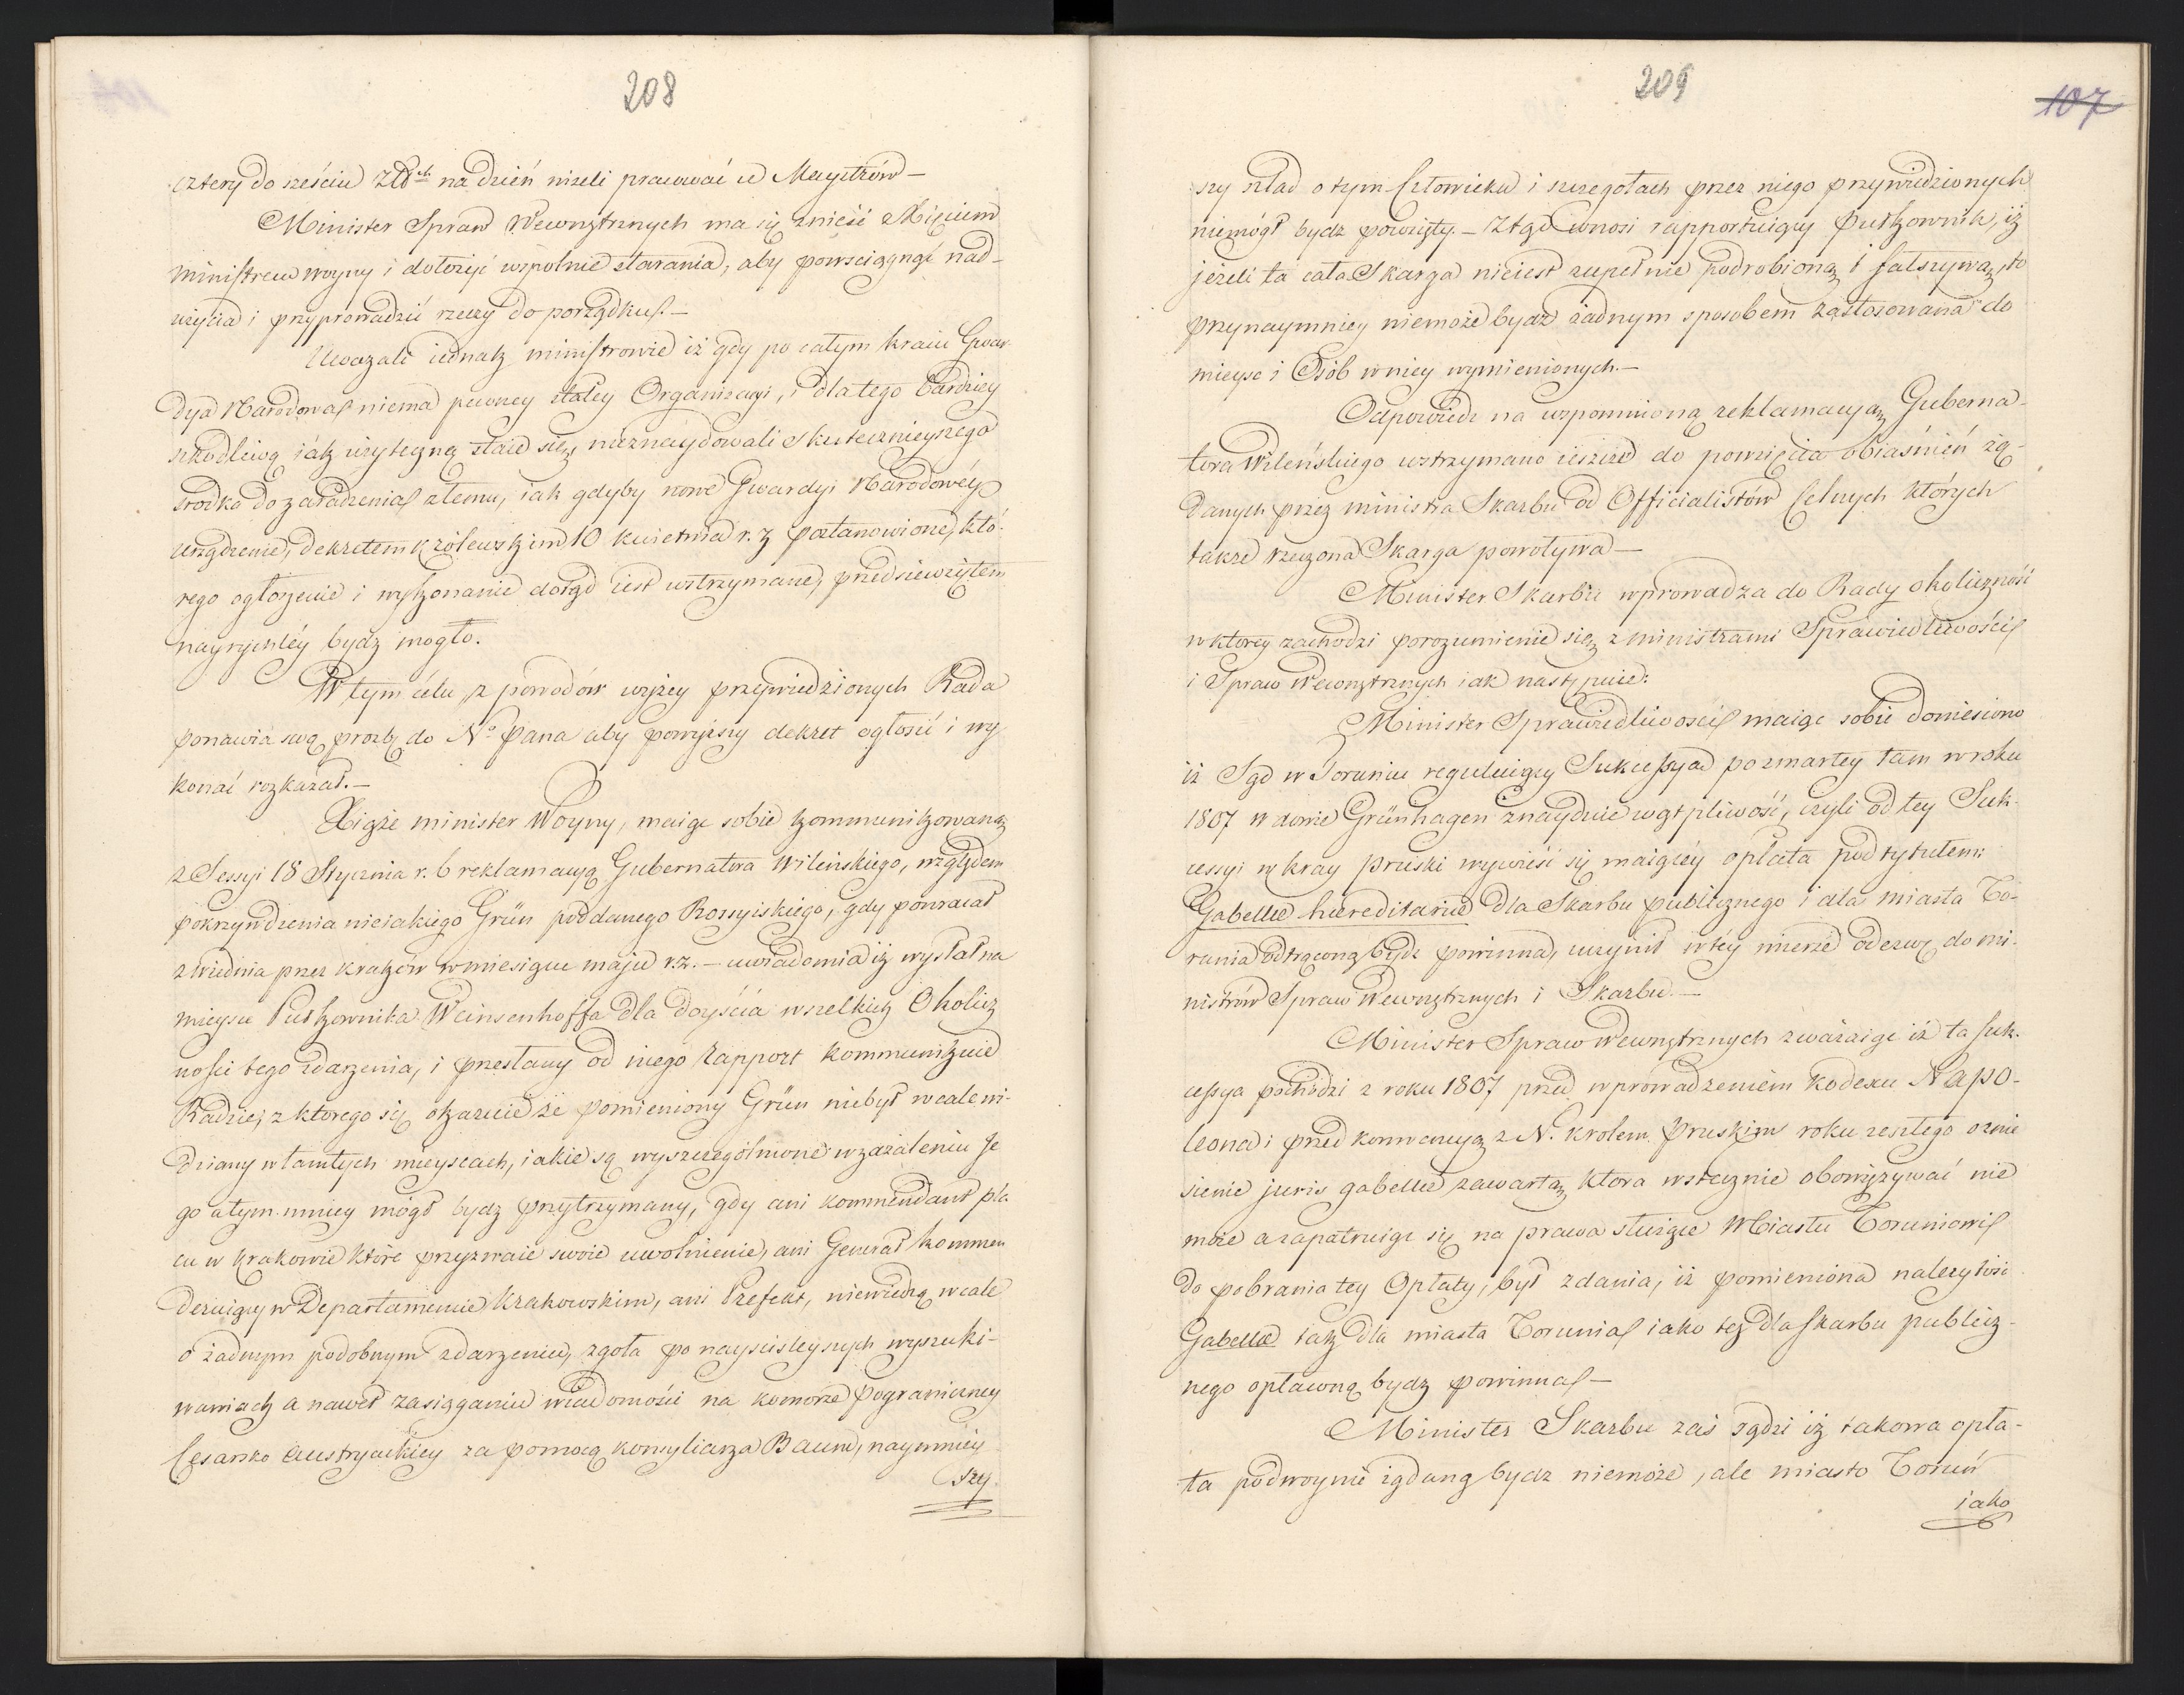 208
cztery do sześciu złł<sup>ch</sup> na dzień niżeli pracować u Maystrów —
Minister Spraw Wewnętrznych ma się znieść z Xięciem
ministrem woyny i dołożyć wspolnie starania, aby powsciągnąć nad-
użycia i przyprowadzić rzeczy do porządku. —
Uważali iednak ministrowie iż gdy po całym kraiu Gwar-
dya Narodowa niema pewney stałey Organizacyi, i dlatego bardziey
szkodliwą iák użyteczną staie się, nieznaydowali skutecznieyszego
srodka do zaradzenia złemu, iak gdyby nowe Gwardyi Narodowéy
urządzenie, dekretem królewskim 10 kwietnia r. z postanowione, któ-
rego ogłoszenie i wykonanie dotąd iest wstrzymane, przedsiewziętem
nayrychléy bydz mogło.
W tym celu, z powodów wyżey przywiedzionych Rada
ponawia swą prozbę do N<sup>o</sup> Pana aby powyższy dekret ogłosić i wy
konać rozkazał. —
Xiąże minister Woyny, maiąc sobie kommunikowaną
z Sessyi 18 Stycznia r. b reklamacyą Gubernatora Wileńskiego, względem
pokrzywdzenia nieiakiego Grün poddanego Rossyiskiego, gdy powracał
z Wiednia przez kraków w miesiącu maju r. z. — uwiadomia iż wysłał na
mieysce Pułkownika Weinsenhoffa dla doyścia wszelkich Okolicz
ności tego zdarzenia, i przesłany od niego rapport kommunikuie
Radzie, z ktorego się okazuie że pomieniony Grün niebył wcale wi-
dziany w tamtych mieyscach, iakie są wyszczególnione w zażaleniu Je
go a tym mniey mógł bydz przytrzymany, gdy ani kommendant pla
cu w krakowie które przyznaie swoie uwolnienie, ani Generał kommen
deruiący w Departamencie Krakowskim, ani Prefekt, niewiedzą wcale
o żadnym podobnym zdarzeniu, zgoła po nayscisleyszych wyszuki-
waniach a nawet zasiąganiu wiadomości na komorze pograniczney
Cesarsko Austryackiey za pomocą konsyliarza Baum, naymniey
szy.
209
107
szy ślad o tym Człowieku i szczegołach przez niego przywiedzionych
niemógł bydz powzięty. — Ztąd wnosi rapportuiący Pułkownik, iż
jeżeli ta cała Skarga nieiest zupełnie podrobioną i fałszywą, to
przynaymniey niemoże bydz żadnym sposobem zastosowana do
mieysc i Osób w niey wymienionych. —
Odpowiedz na wspomnioną reklamacyą Guberna-
tora Wileńskiego wstrzymano ieszcze do powzięcia obiaśnień żą-
danych przez ministra Skarbu od Officialistów Celnych których
także rzeczona Skarga powoływa —
Minister Skarbu wprowadza do Rady okoliczność
w ktorey zachodzi porozumienie się z ministrami Sprawiedliwości
i Spraw Wewnętrznych iak następuie:
Minister Sprawiedliwości maiąc sobie doniesiono
iż Sąd w Toruniu reguluiący Sukcessyą po zmarłey tam w roku
1807 wdowie Grünhagen znayduie wątpliwość, czyli od tey Suk-
cessyi w kray pruski wywieść się maiącéy opłata pod tytułem:
Gabellæ hæreditariæ dla Skarbu publicznego i dla miasta To-
runia odtrąconą bydz powinna, uczynił w téy mierze odezwę do mi-
nistrów Spraw Wewnętrznych i Skarbu. —
Minister Spraw Wewnętrznych zważaiąc iż ta suk-
cessya pochodzi z roku 1807 przed wprowadzeniem kodexu Napo-
leona i przed konwencyą z N. krolem Pruskim roku zeszłego o znie
sienie juris gabellæ zawartą, ktora wstecznie obowiązywać nie
może a zapatruiąc się na prawa służące Miastu Toruniowi
do pobrania tey Opłaty, był zdania, iż pomieniona należytość
Gabellæ tak dla miasta Torunia iako też dla skarbu publicz-
nego opłaconą bydz powinna —
Minister Skarbu zaś sądzi iż takowa opła-
ta podwoynie żądaną bydz niemoże, ale miasto Toruń
iako